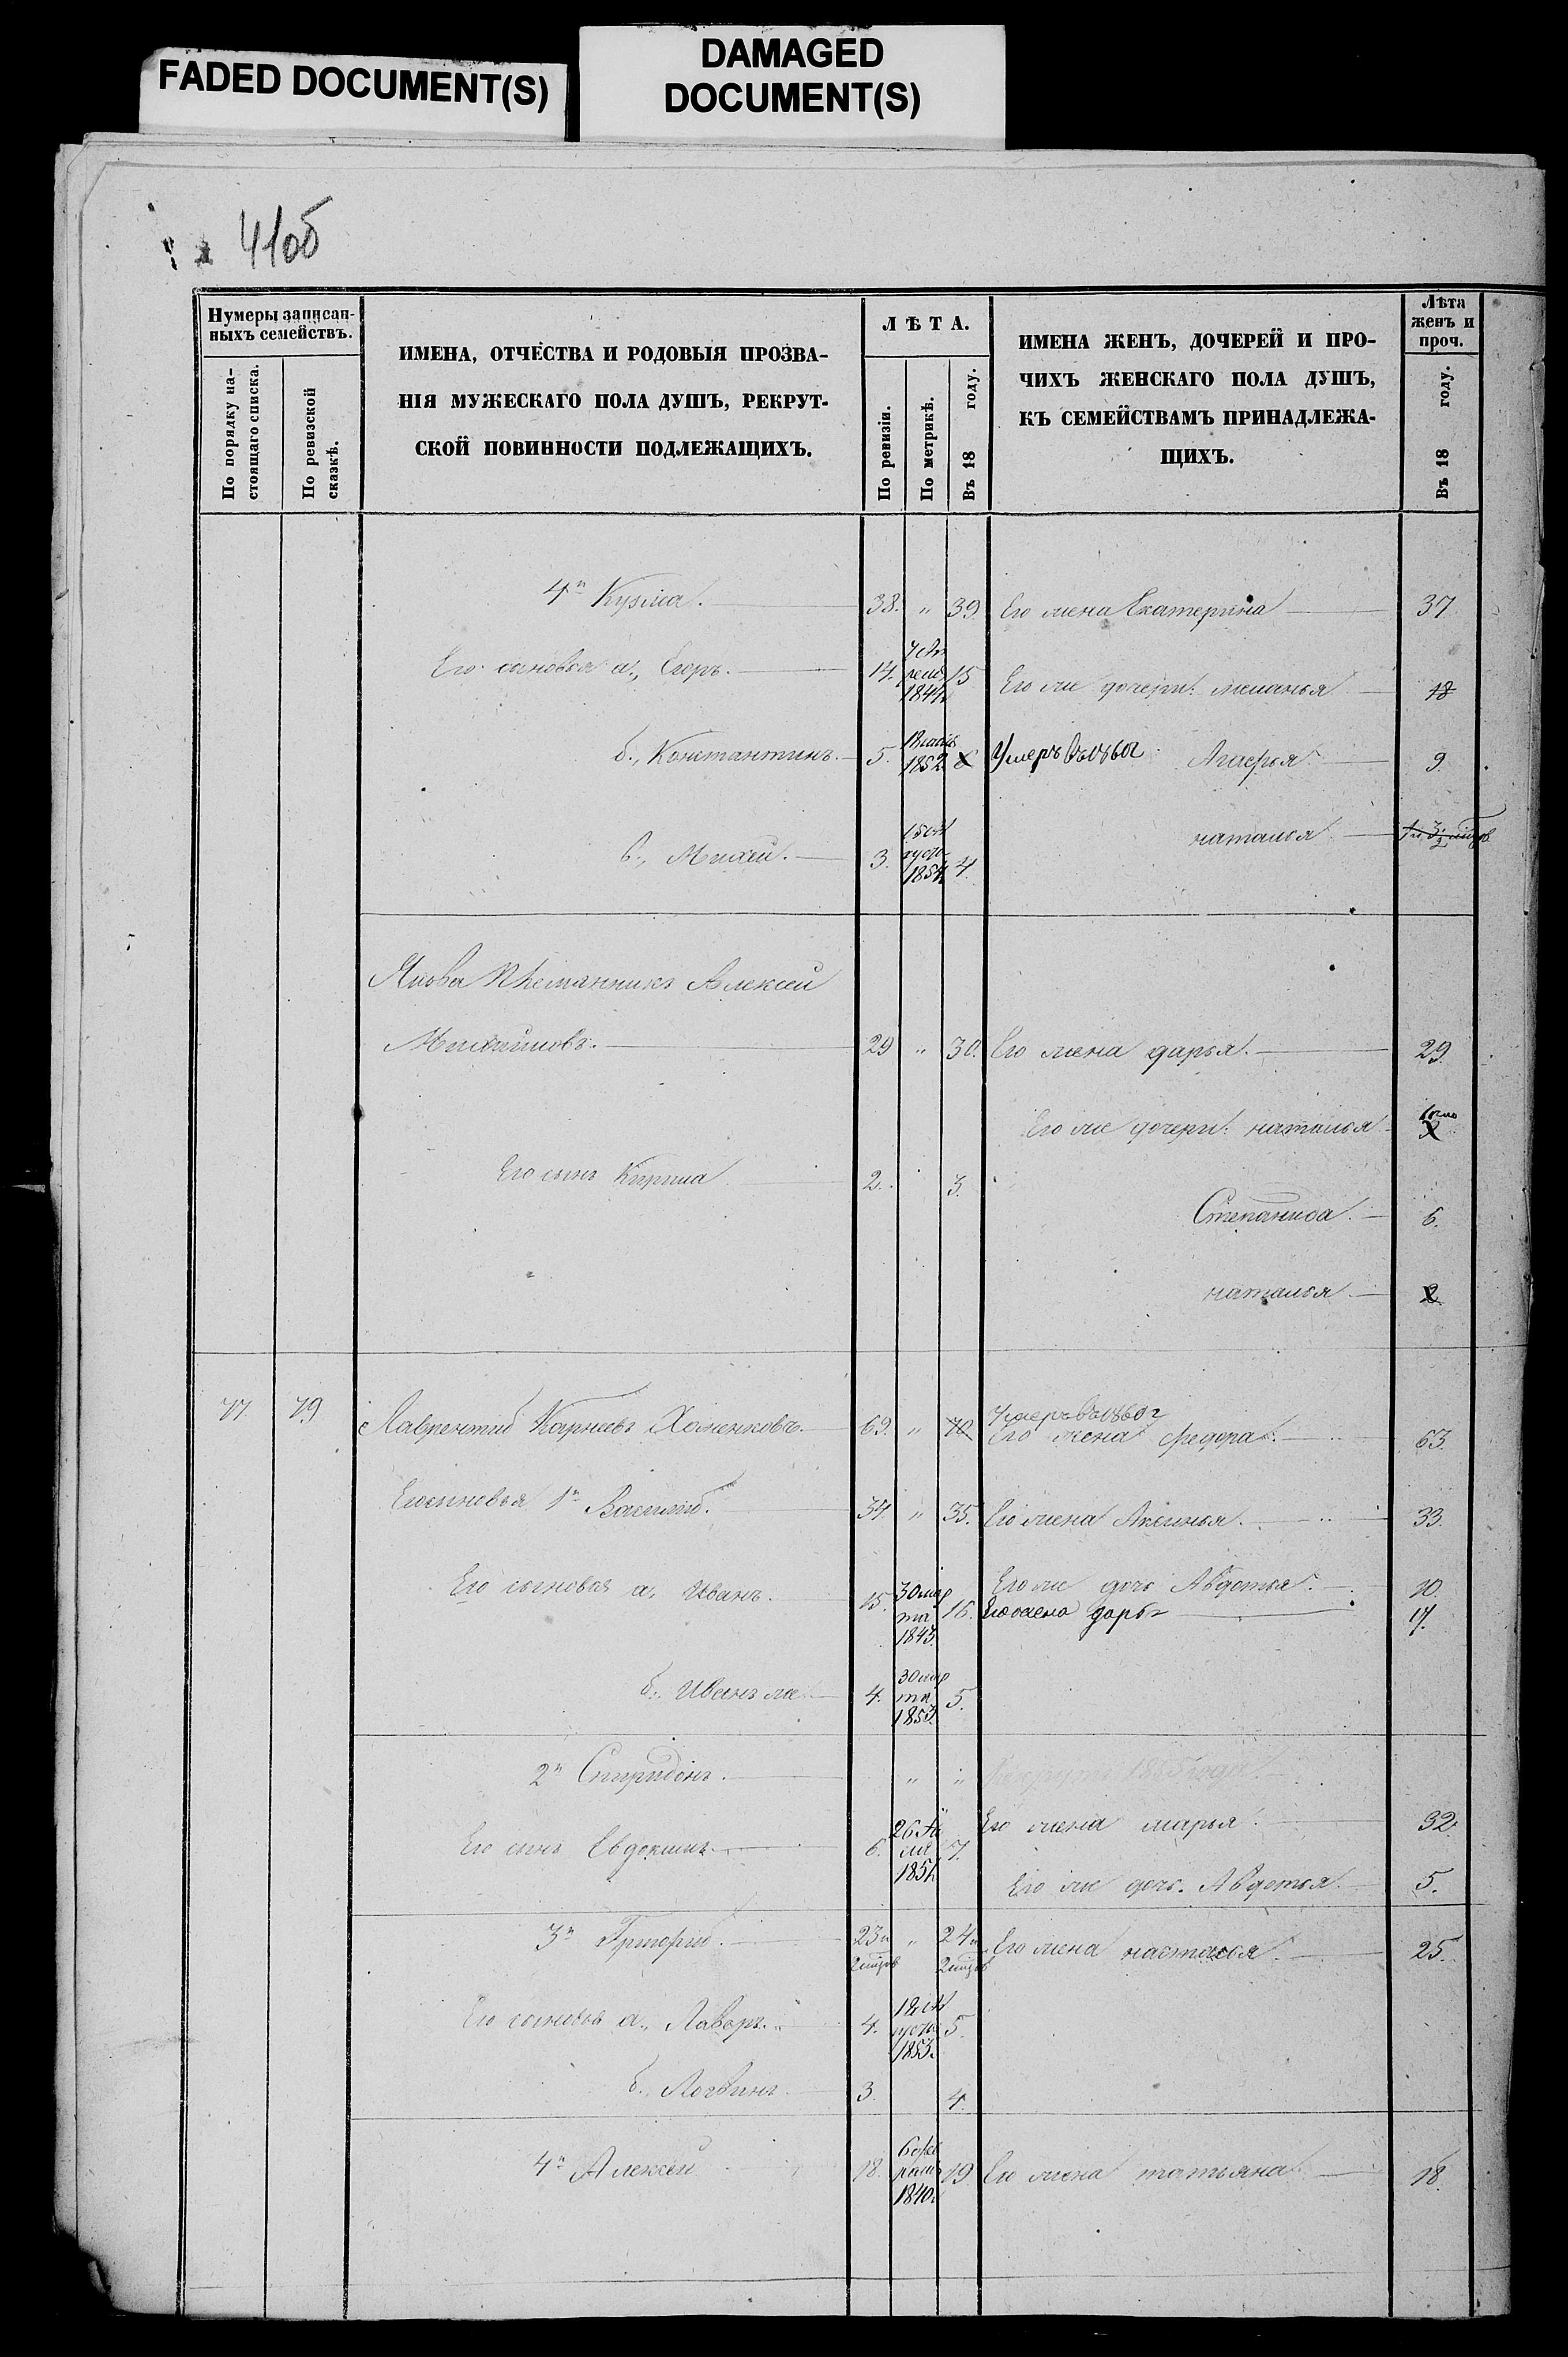 FADED DOCUMENT(S)
DAMAGED
DOCUMENT(S)
41об
Нумеры записан-
ныхъ семействъ.
По порядку на-
стоящаго списка.
По ревизской
сказкѣ.
ИМЕНА, ОТЧЕСТВА И РОДОВЫЯ ПРОЗВА-
НІЯ МУЖЕСКАГО ПОЛА ДУШЪ, РЕКРУТ-
СКОЙ ПОВИННОСТИ ПОДЛЕЖАЩИХЪ.
ЛѢТА.
По ревизіи.
По метрикѣ.
Въ 18 году.
ИМЕНА ЖЕНЪ, ДОЧЕРЕЙ И ПРО-
ЧИХЪ ЖЕНСКАГО ПОЛА ДУШЪ,
КЪ СЕМЕЙСТВАМЪ ПРИНАДЛЕЖА-
ЩИХЪ.
Лѣта
женъ и
проч.
Въ 18 году.
4й Кузма. 38. " 39 Его жена Екатерина 37
Его сыновья а., Егоръ. 14. 1844 15 Его же дочери: меланья 18
б., Константинъ. 5. 1852 Умеръ въ 1860г Агафья 9.
в., Михей. 3. 1854 4. наталья
Племянникъ Алексей
Михайловъ. 29 " 30. Его жена дарья. 29.
Его же дочери: наталья
Его сынъ 2. 3.
Степанида. 6.
наталья
77. 79 Лаврентий Карпевъ Хоменковъ. 69. " 70 Умеръ въ 1860г
Его жена федора. 63.
Его сыновья 1й Василий. 34. " 35. Его жена Аксинья. 33.
Его сыновья а, Иванъ. 15. 30 мар
та
1843. 16. Его же дочь Авдотья. 10
Его жена дарья 17.
б., Иванъ же 4. 30 мар
та
1853. 5.
2й Спиридонъ. " " 1855 года
Его жена марья. 32.
Его сынъ Евдокимъ 6. 26
1851 7.
Его же дочь. Авдотья 5.
3й Григорий. 23 " 24 Его жена настасья. 25.
Его сыновья а., Лаворъ. 4. 1853. 5.
б., Логвинъ. 3 4.
4й Алексей 18. 6 фев
раля
1840. 19 Его жена татьяна 18.